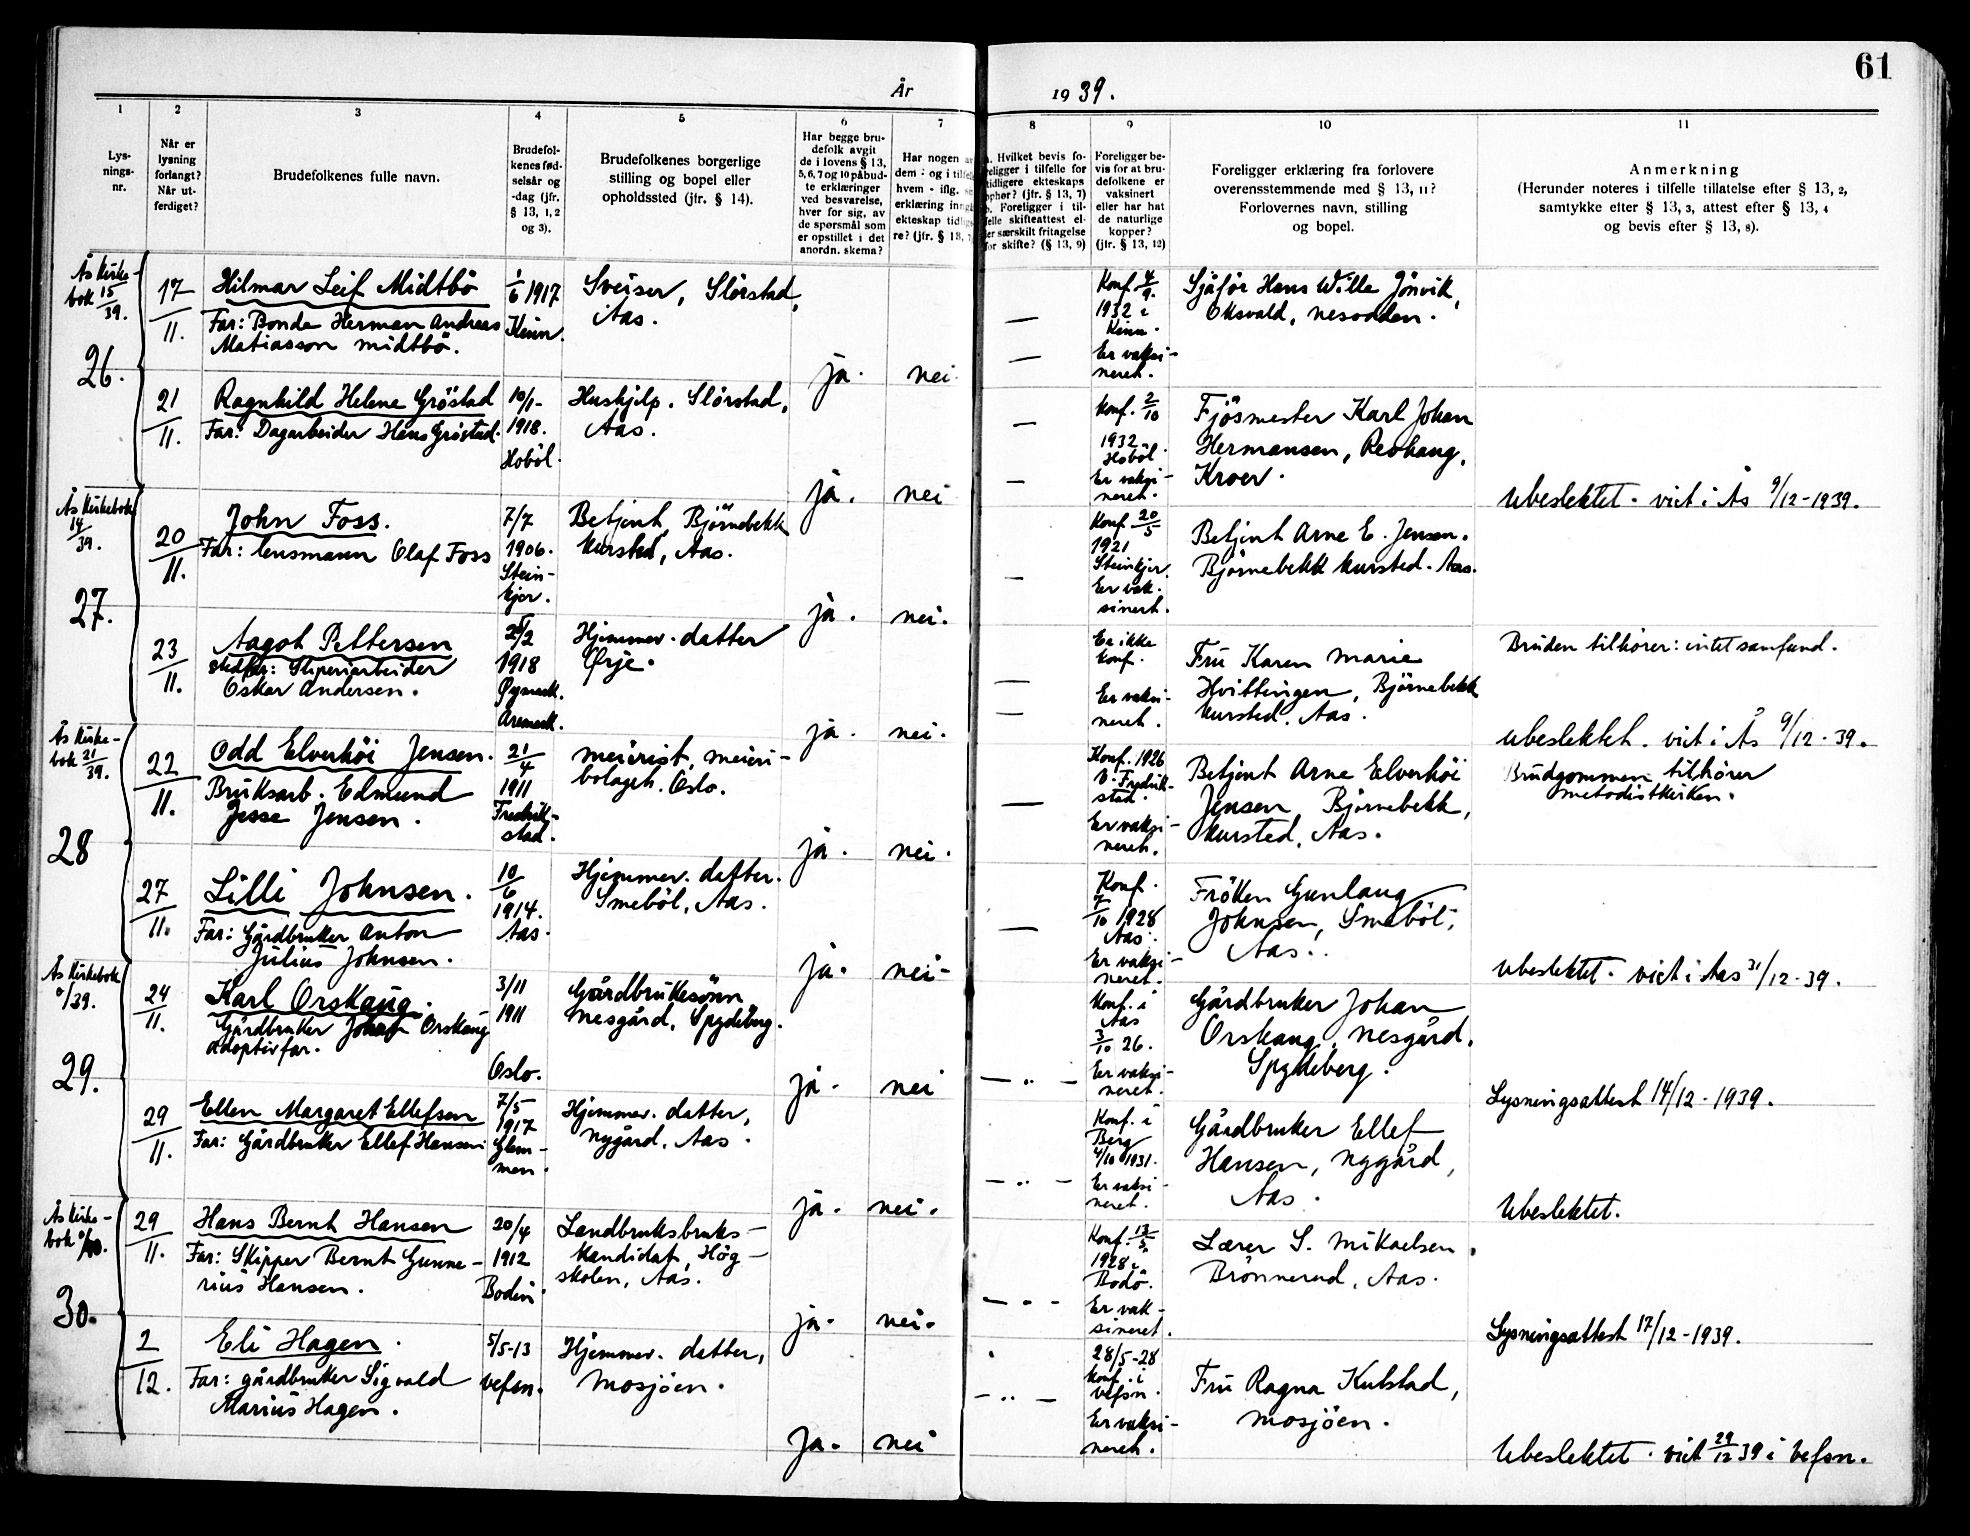 61
År
19 39.
1
2
3
4
5
6
7
8
9
10
11
Lys-
nings-
nr.
Når er
lysning
forlangt?
Når ut-
ferdiget?
Brudefolkenes fulle navn.
Brudefol-
kenes fød-
selsår og
-dag (jfr.
§ 13, 1, 2
og 3).
Brudefolkenes borgerlige
stilling og bopel eller
opholdssted (jfr. § 14).
Har begge bru-
defolk avgit
de i lovens § 13,
5, 6, 7 og 10 påbud-
te erklæringer
ved besvarelse,
hver for sig, av
de spørsmål som
er opstillet i det
anordn. skema?
Har nogen
dem - og i
hvem - iflg.
erklæring
ekteskap
re? (jfr. § 13,
Hvilket bevis fo-
religger i tilfelle for
tidligere ekteskaps
ophør? (jfr. § 13, 7)
Foreligger i til-
felle skifteattest el-
er særskilt fritagelse
for skifte? (§ 13, 9)
Foreligger be-
vis for at bru-
defolkene er
vaksinert
eller har hat
de naturlige
kopper?
(jfr. § 13, 12)
Foreligger erklæring fra forlovere
overensstemmende med § 13, 11?
Forlovernes navn, stilling
og bopel.
Anmerkning
(Herunder noteres i tilfelle tillatelse efter § 13, 2,
samtykke efter § 13, 3, attest efter § 13, 4
og bevis efter § 13, 8).
Ås Kirke-
bok 15/39.
26.
17/11.
Hilmar Leif Midtbö
Far: Bonde Herman Andreas
Matiasson Midtbö.
1/6 1917
Kinn.
Sveiser, Slörstad,
Aas.
ja.
nei.
—
—
Konf. 4/9.
1932 i
Kinn.
Er vaksi-
neret.
Sjåför Hans Wille Jönvik,
Oksvald, Nesodden.
21/11.
Ragnhild Helene Gröstad
Far: Dagarbeider Hans Gröstad.
10/1-
1918.
Hoböl.
Hushjelp. Slörstad,
Aas.
ja.
nei
—
—
Konf. 2/10
1932
Hoböl.
Er vaksi-
neret.
Fjösmester Karl Johan
Hermansen, Revhaug,
Kroer.
Ubeslektet. viet i Ås 9/12-1939.
Ås Kirkebok
14/39.
27.
20/11.
John Foss.
Far: lensmann Olaf Foss
7/7
1906.
Stein-
kjer.
Betjent, Björnebekk
Kursted, Aas.
ja.
nei.
—
Konf. 20/5
1921
Steinkjer.
Er vak-
sinert.
Betjent Arne E. Jensen.
Björnebekk kursted. Aas.
23/11.
Aagot Pettersen
stedfar: Sliperiarbeider
Oskar Andersen.
1918
Øymark.
Aremark.
Hjemmev. datter
Ørje.
ja.
nei.
—
—
Er ikke
konf.
Er vaksi-
neret.
Fru Karen Marie
Hvittingen, Björnebekk
kursted, Aas.
Bruden tilhörer: intet samfund.
Ubeslektet. viet i Ås 9/12-39.
Ås Kirke-
bok 21/39.
28
22/11.
Odd Elverhöi Jensen.
Bruksarb. Edmund
Jesse Jensen.
21/4
1911
Fredrik-
stad.
Meierist, meieri-
bolaget. Oslo.
ja.
nei.
—
Konf. 1926
V. Fredrik-
stad.
Er vaksi-
neret.
Betjent Arne Elverhöi
Jensen, Björnebekk,
kursted, Aas.
Brudgommen tilhörer
metodistkirken.
27/11.
Lilli Johnsen.
Far: Gårdbruker Anton
Julius Johnsen.
10/6
1914.
Aas.
Hjemmev. datter.
Smeböl, Aas.
ja.
nei-
—
Konf.
7/10 1928
Aas.
Er vaksi-
neret.
Fröken Gunlaug
Johnsen, Smeböl,
Aas.
Ubeslektet. viet i Aas 31/12-39.
Ås Kirkebok
0/39.
29.
24/11.
Karl Orskaug.
Gårdbruker Johan Orskaug
adoptivfar.
3/11
1911
Oslo.
Gårdbrukesönn
Nesgård, Spydeberg.
ja.
nei
— „ —
Konf. i
Aas
3/10 26.
Er vaksi-
neret.
Gårdbruker Johan
Orskaug, Nesgård,
Spydeberg.
Lysningsattest 14/12-1939.
29/11.
Ellen Margaret Ellefsen
Far: Gårdbruker Ellef Hansen
7/5
1917
Glem-
men.
Hjemmev. datter,
Nygård, Aas.
ja.
nei.
— „ —
Konf. i
Berg
4/10 1931.
Er vaksi-
neret.
Gårdbruker Ellef
Hansen, Nygård,
Aas.
Ubeslektet.
Ås Kirke-
bok 0/40.
30.
29/11.
Hans Bernt Hansen
Far: Skipper Bernt Gunne-
rius Hansen.
20/4
1912
Bodin
Landbruksbruks-
kandidat, Hög-
skolen, Aas.
ja.
nei.
Konf. 13/5.
1928 i
Bodö.
Er vak-
sineret.
Lærer S. Mikaelsen,
Brönnerud, Aas.
Lysningsattest 17/12-1939.
2/12.
Eli Hagen.
Far: gårdbruker Sigvald
Marius Hagen.
5/5-13
Vefsn.
Hjemmev. datter,
Mosjöen.
Ja.
nei
— „ —
28/5-28
konf. i
Vefsn.
Er vaksi-
neret.
Fru Ragna Kulstad,
Mosjöen.
Ubeslektet. viet 29/12 39 i Vefsn.